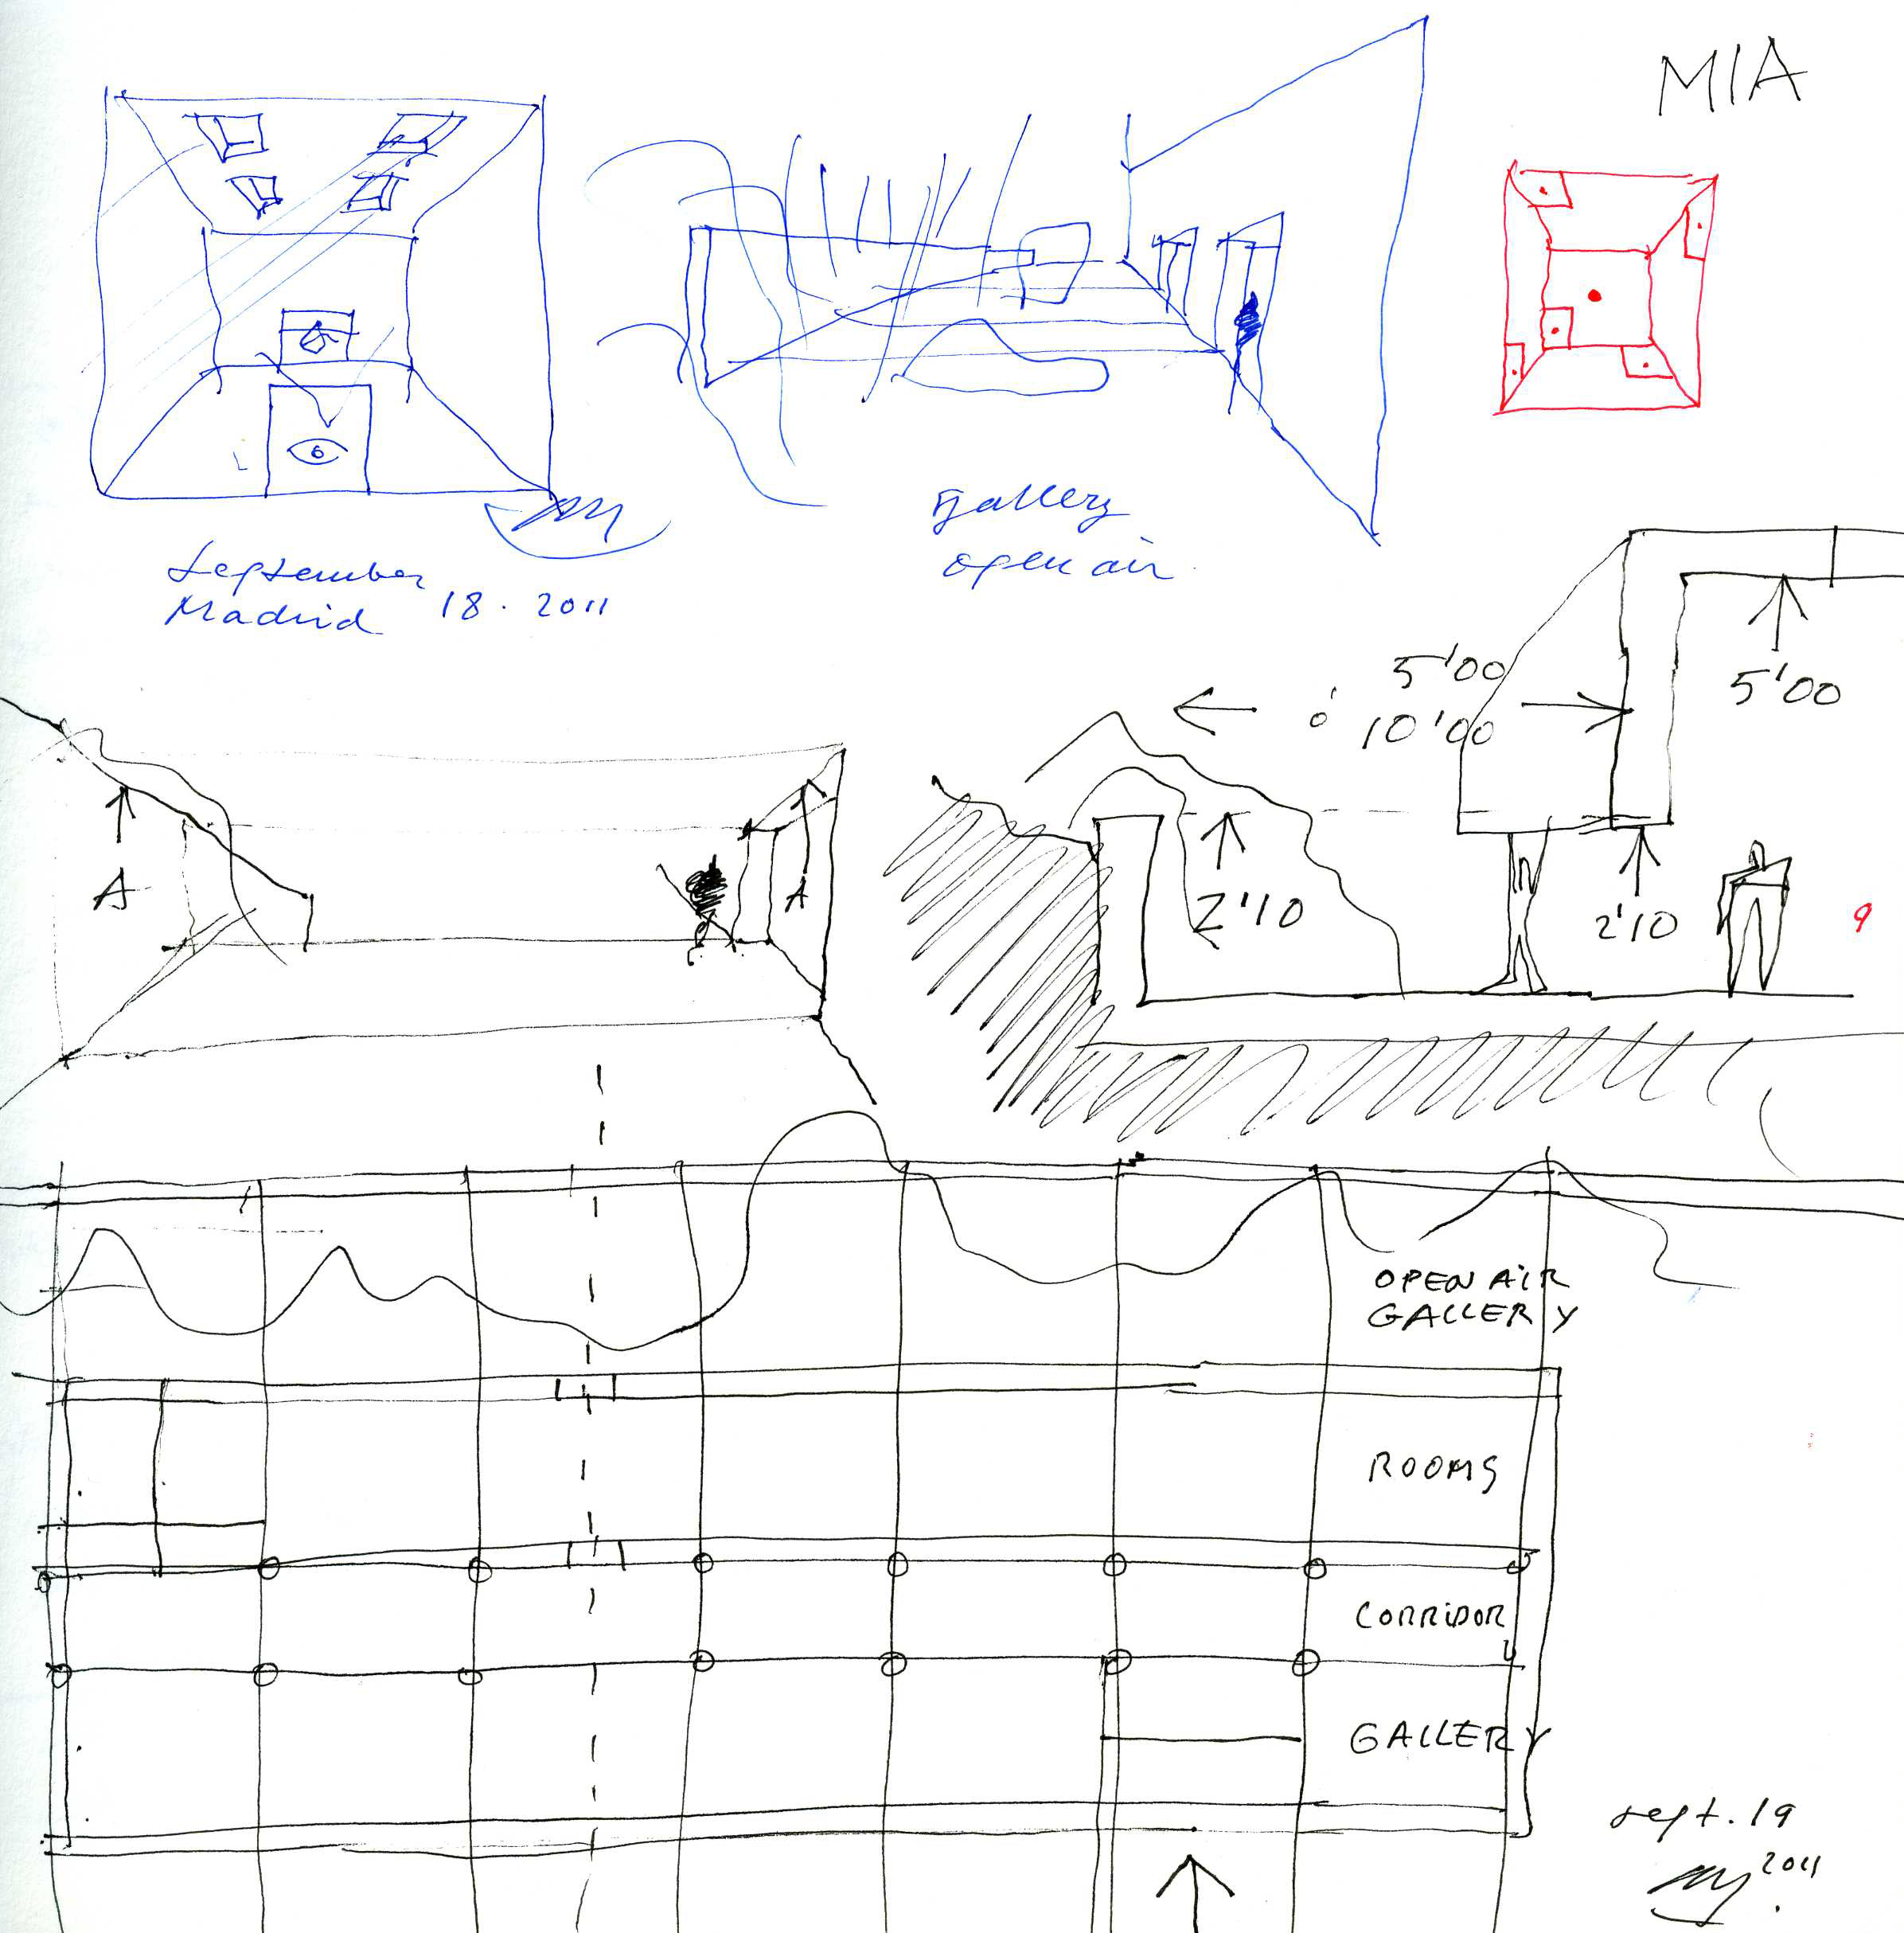 MIA
Gallery
open air
September
Madrid 18. 2011
5'00
ó 10'00
5'00
A
A
2'10
2'10
9
OPEN AiR
GALLERY
ROOMS
CORRiDOR
GALLERY
sept. 19
2011